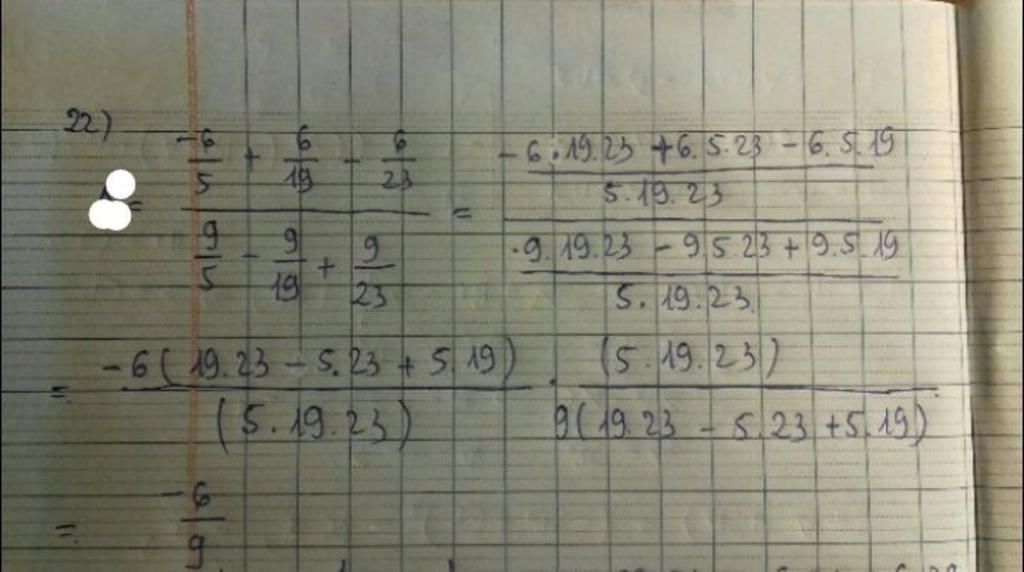 22)
= (-6/5 + 6/19 - 6/23) / (9/5 - 9/19 + 9/23) = ((-6.19.23 + 6.5.23 - 6.5.19) / (5.19.23)) / ((9.19.23 - 9.5.23 + 9.5.19) / (5.19.23))
= (-6(19.23 - 5.23 + 5.19)) / ((5.19.23)) . ((5.19.23)) / (9(19.23 - 5.23 + 5.19))
= -6/9